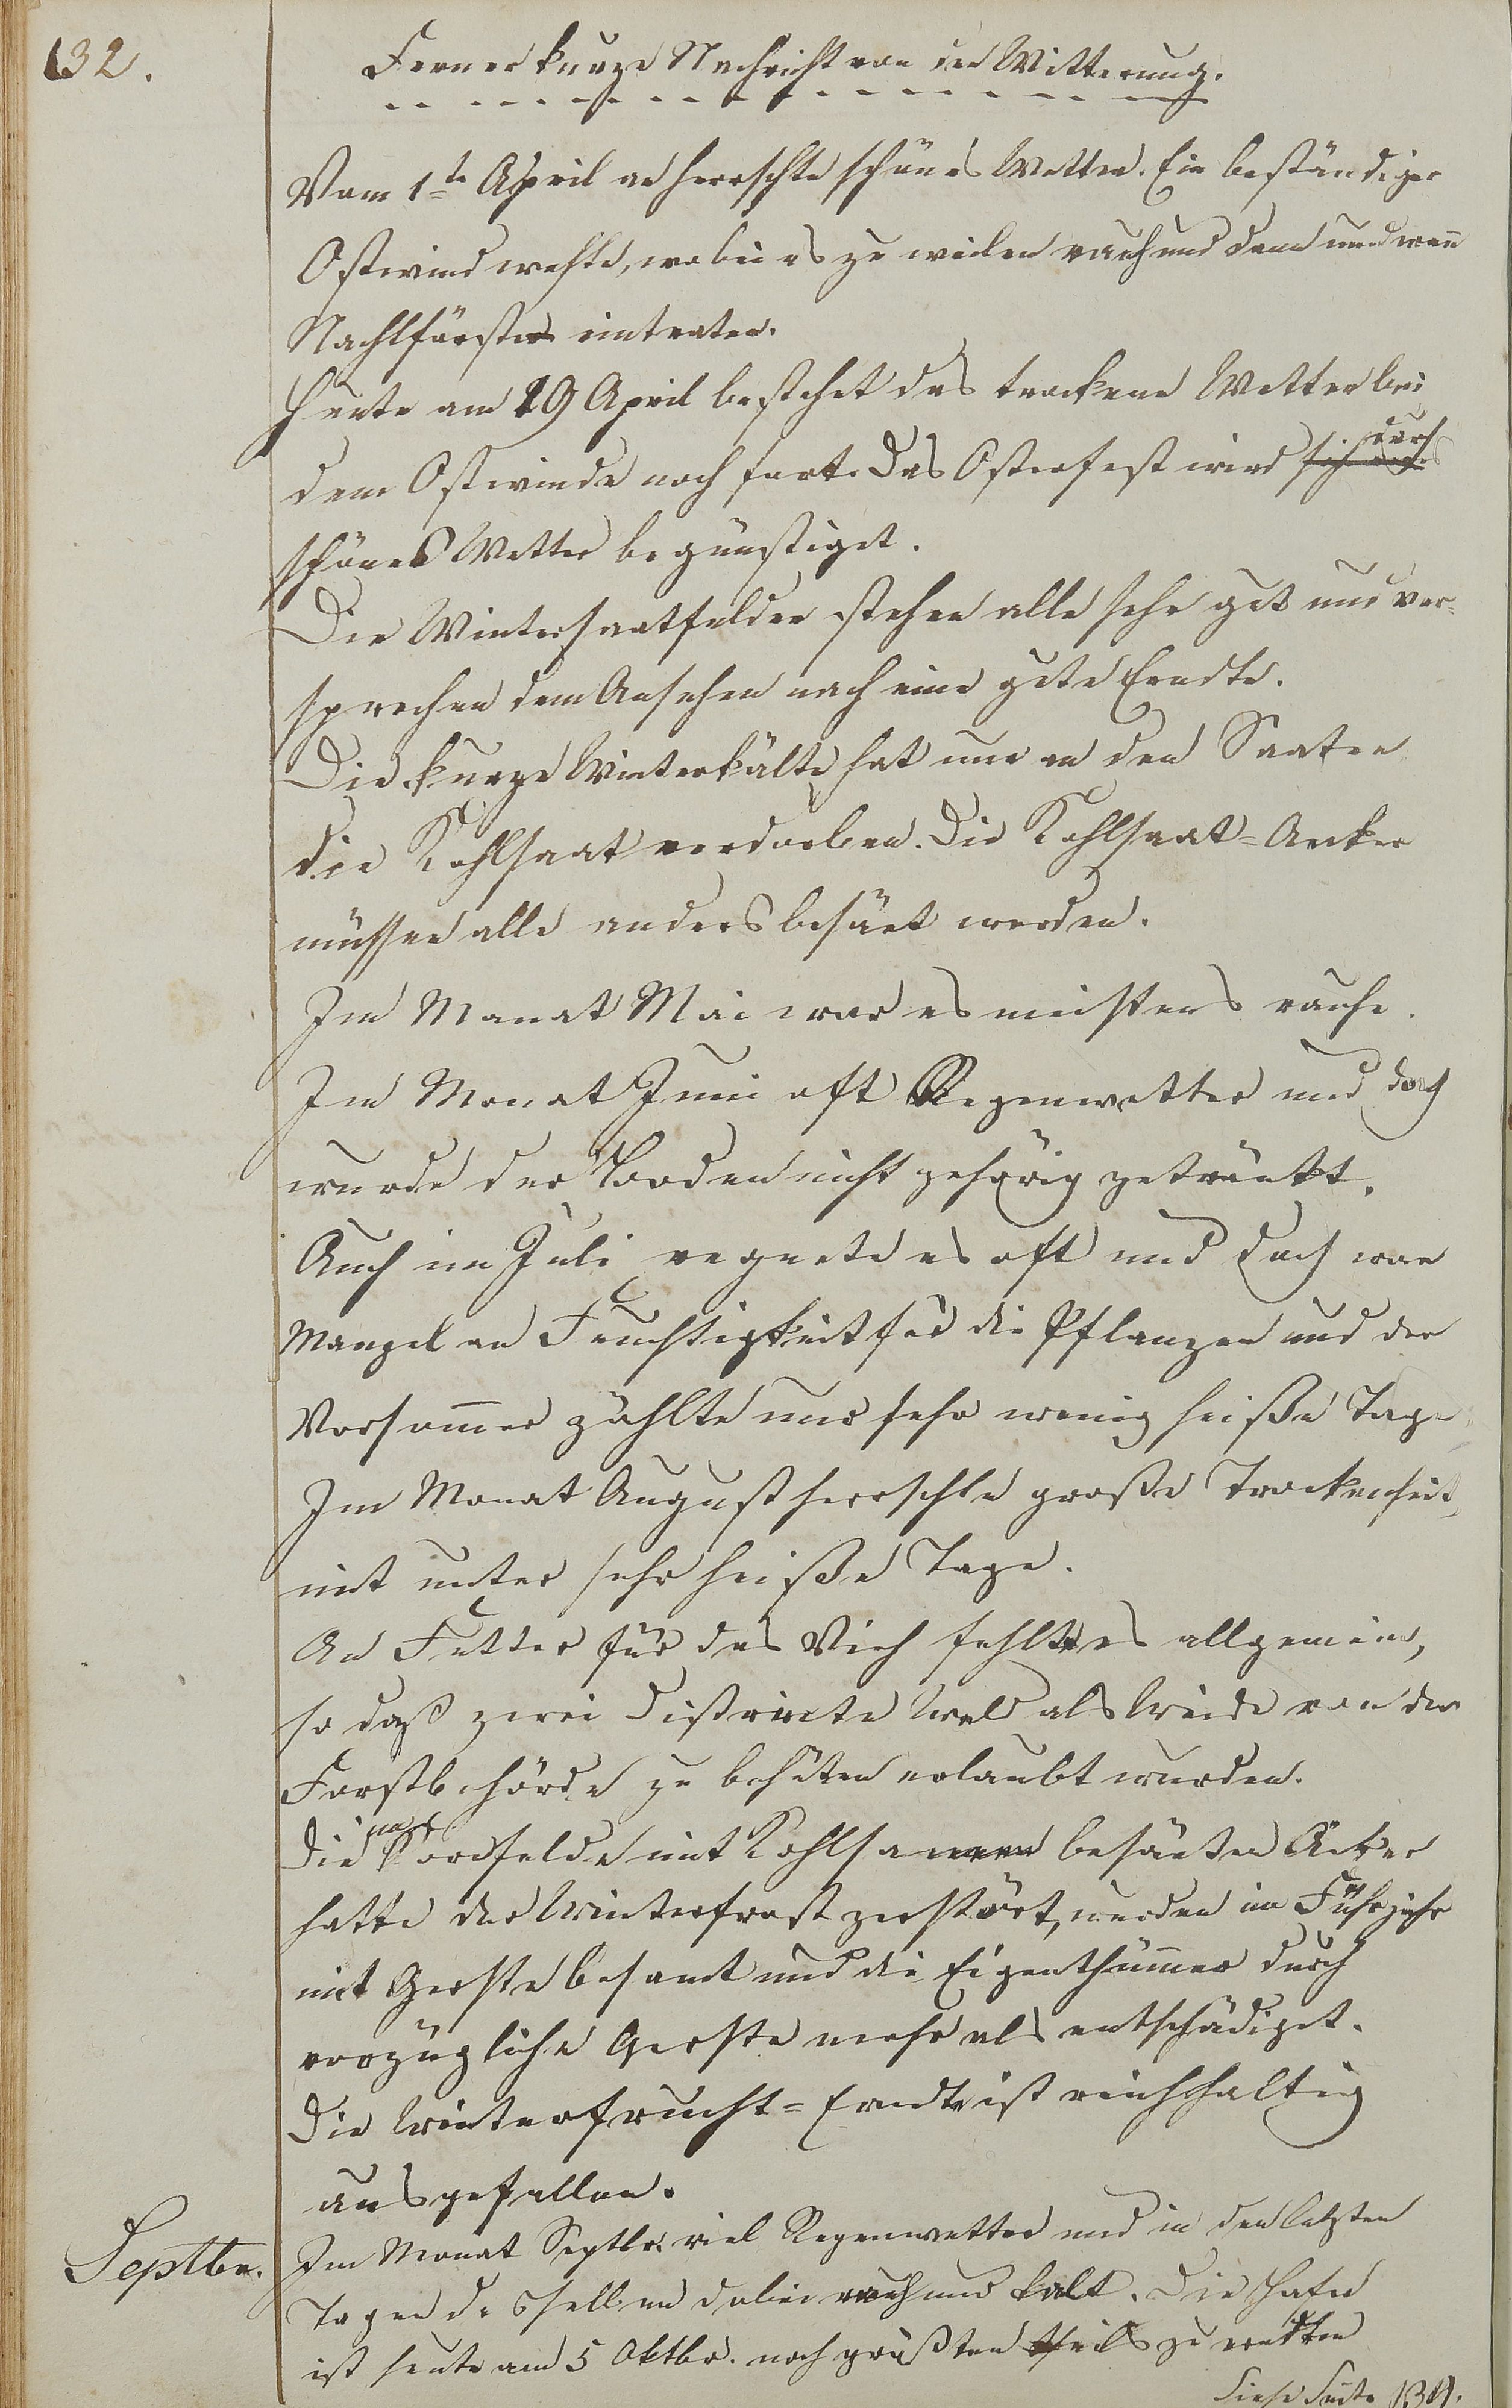 132.
Ferner kurze Nachricht von der Witterung.
Vom 1te April an herrschte schönes Wetter. Ein beständiger
Ostwind wehte, wobei es zu weilen rauh und dann und wann
Nachtfröste eintraten.
Heute am 19 April bestehet das trockene Wetter bei
dem Ostwinde noch fort. Das Osterfest wird durch
schönes Wetter begünstiget.
Die Wintersaatfelder stehen alle sehr gut und ver-
sprechen dem Ansehen nach eine gute Erndte.
Die kurze Winterkälte hat nur an den Saaten
die Kohlsaat verdorben. Die Kohlsaat-Aecker
müssen alle anders besäet werden.
Im Monat Mai war es meistens rauhe.
Im Monat Juni oft Regenwetter und doch
wurde der Boden nicht gehörig getränkt.
Auch im Juli regnete es oft und doch war
Mangel an Feuchtigkeit für die Pflanzen und der
Vorsommer zählte nur sehr wenig heiße Tage.
Im Monat August herrschte große Trockenheit,
mit unter sehr heiße Tage.
An Futter für das Vieh fehlte es allgemein,
so daß zwei Districte Wald als Weide von der
Forstbehörde zu behüten erlaubt wurden.
Die im Kornfelde mit Kohlsamen besäeten Äcker
hatte der Winterfrost zerstört, wurden im Frühjahr
mit Gerste besamt und die Eigenthümmer durch
vorzügliche Gerste mehr als entschädiget.
Die Winterfrucht-Erndte ist reichhaltig
ausgefallen.
Septbr. Im Monat Septbr. viel Regenwetter und in den letzten
Tagen desselben dabei rauh und kalt. Die Hafer
ist heute am 5 Oktbr. noch größten theils zu erndten
Siehe Seite 139.